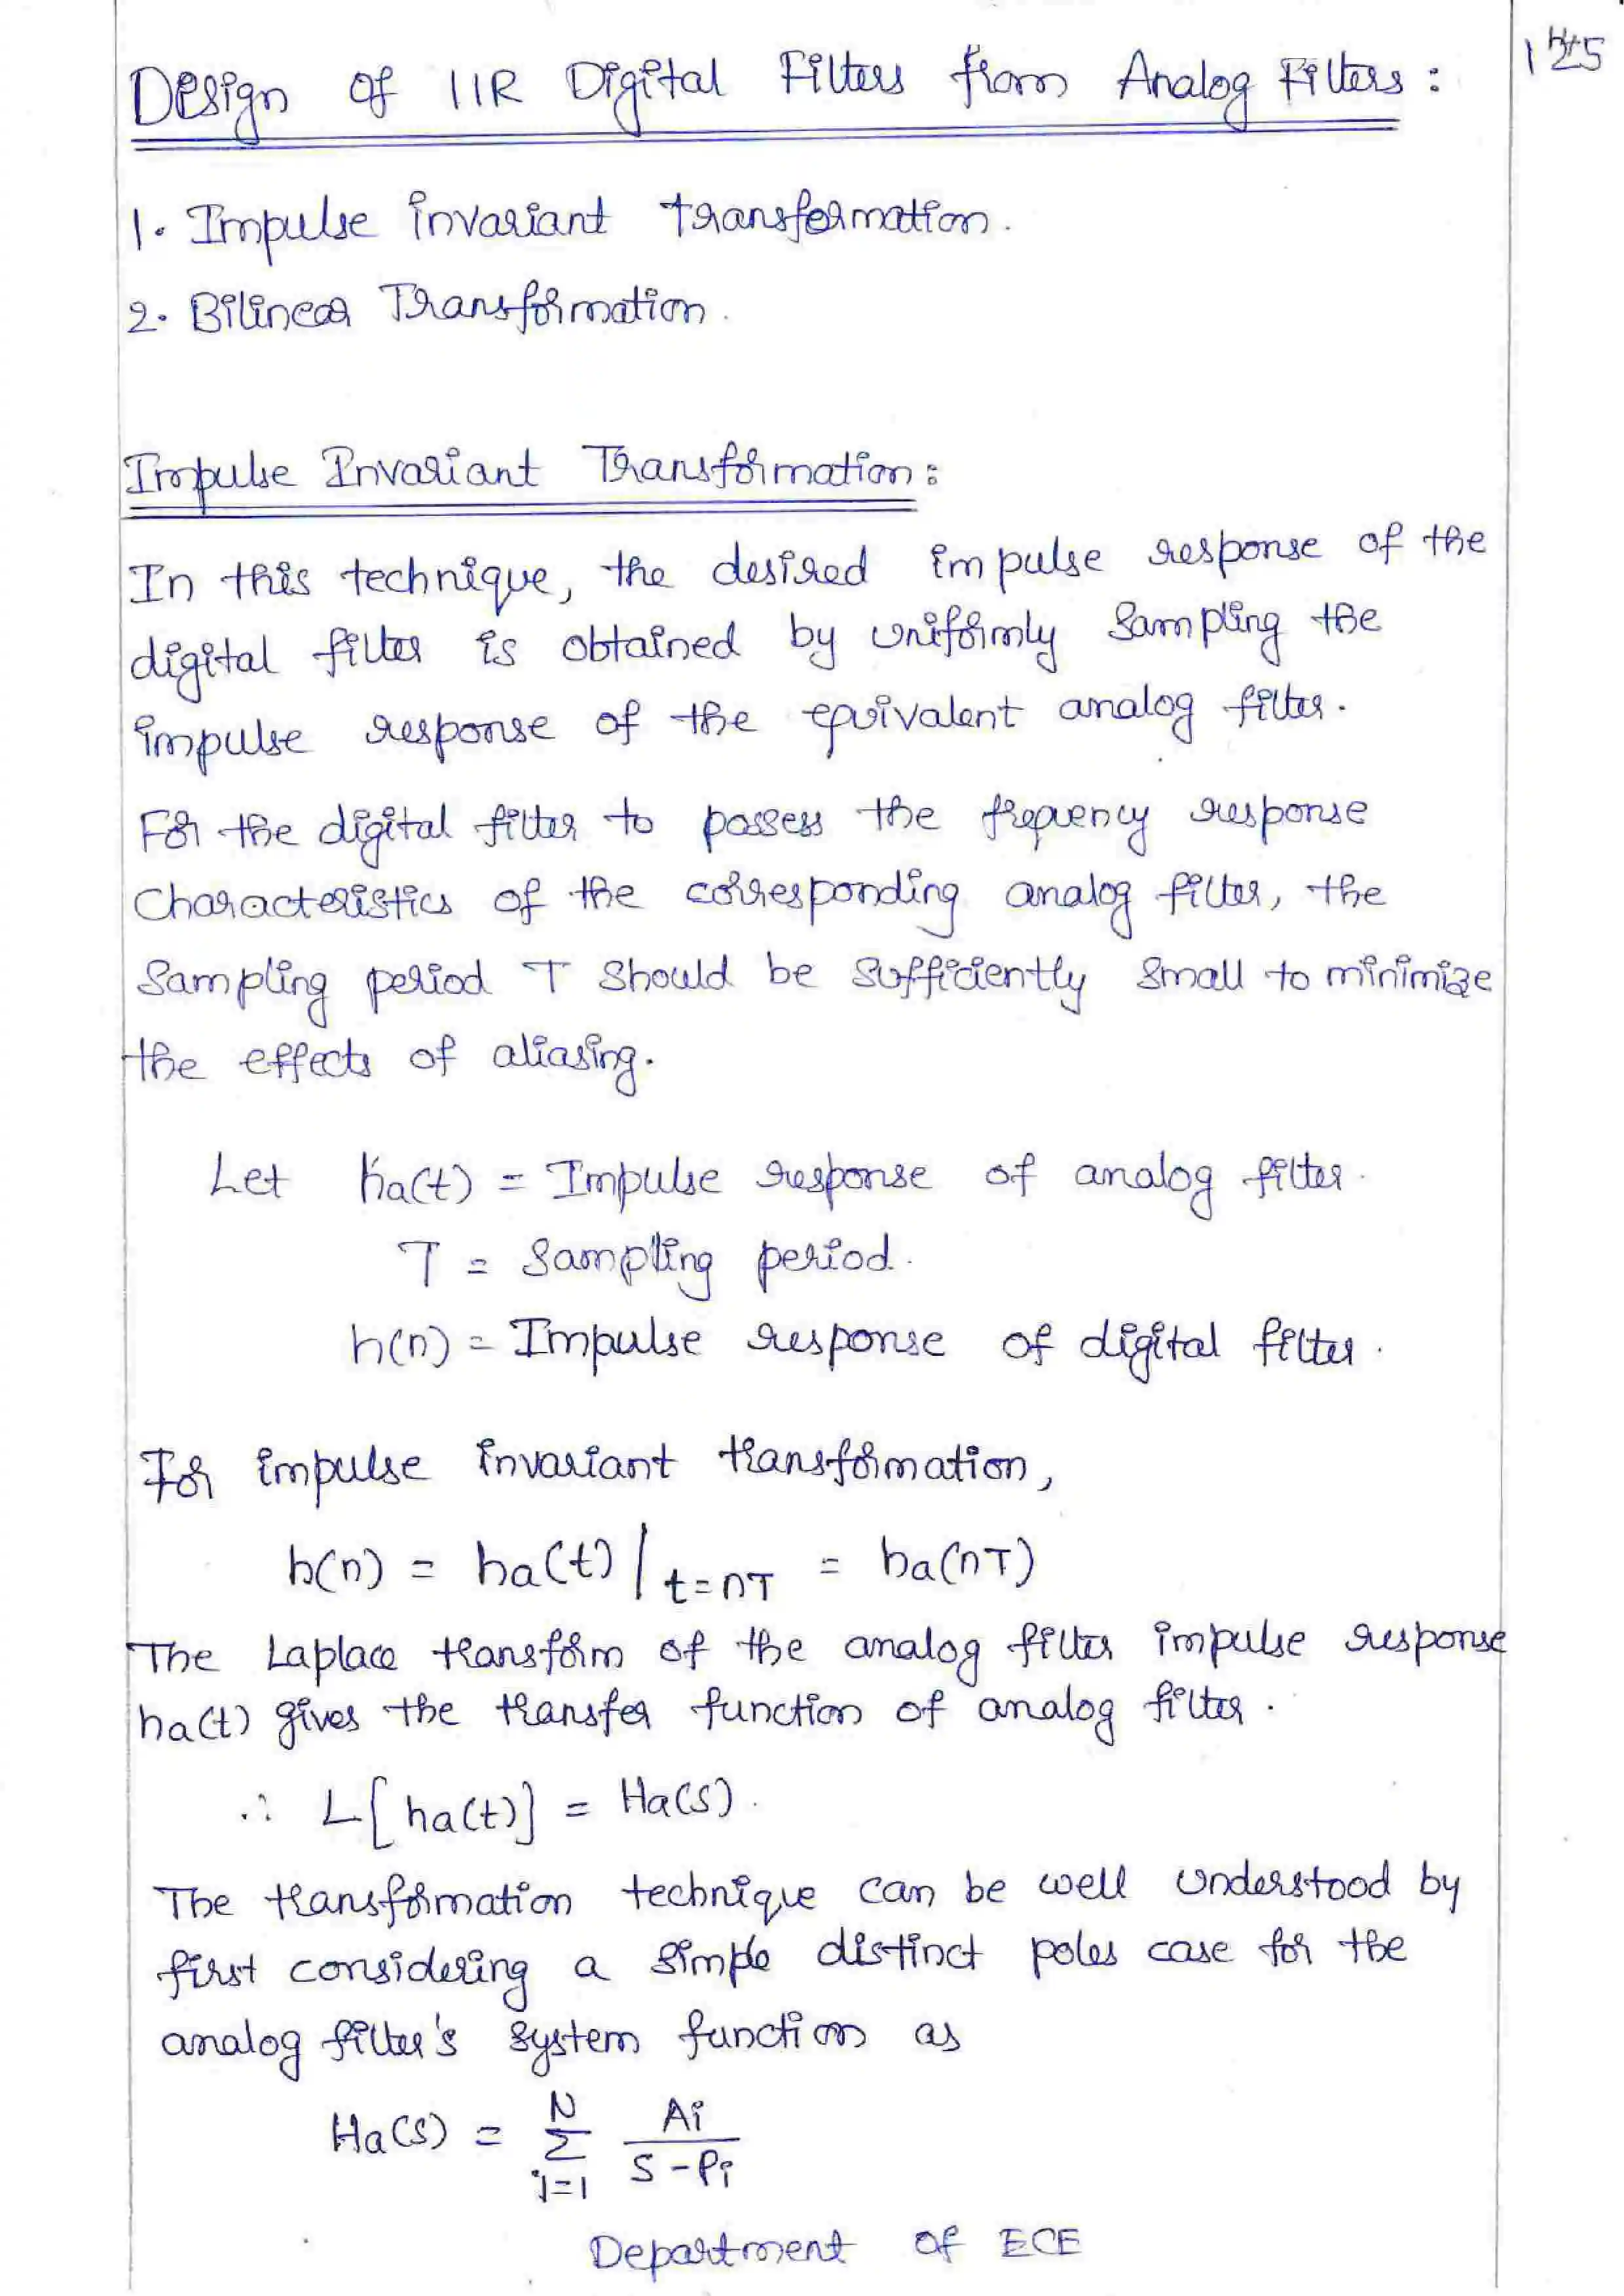 Design of IIR Digital Filters from Analog Filters :
1. Impulse invariant transformation.
2. Bilinear Transformation.
Impulse Invariant Transformation :
In this technique, the desired impulse response of the
digital filter is obtained by uniformly sampling the
impulse response of the equivalent analog filter.
For the digital filter to possess the frequency response
characteristics of the corresponding analog filter, the
sampling period T should be sufficiently small to minimize
the effects of aliasing.
Let ha(t) = Impulse response of analog filter.
T = Sampling period.
h(n) = Impulse response of digital filter.
For impulse invariant transformation,
h(n) = ha(t) / t=nT = ha(nT)
The Laplace transform of the analog filter impulse response
ha(t) gives the transfer function of analog filter.
∴ L[ha(t)] = Ha(s).
The transformation technique can be well understood by
first considering a simple distinct poles case for the
analog filter's system function as
Ha(s) = N Σ i=1 Ai / s-Pi
Department of ECE